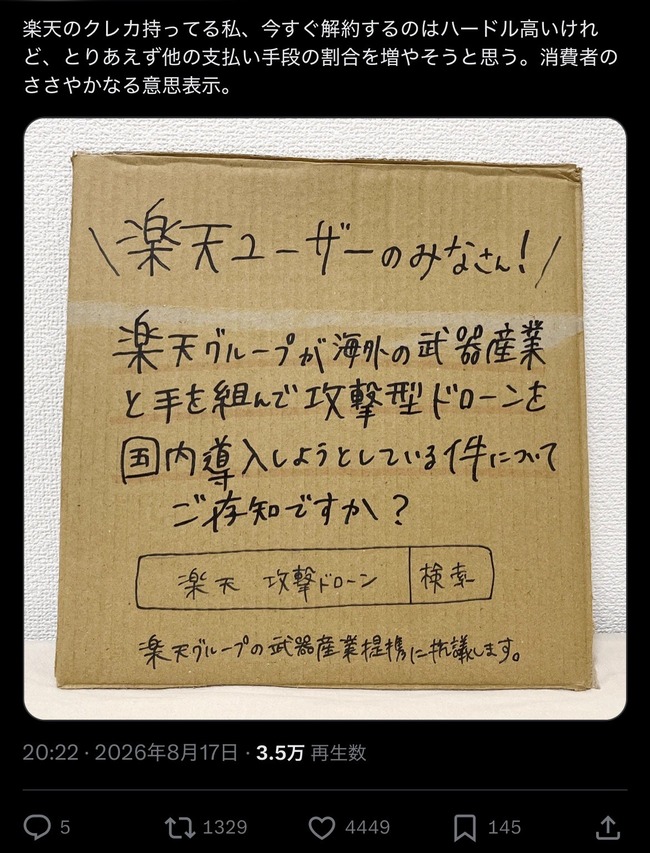 楽天のクレカ持ってる私、今すぐ解約するのはハードル高いけれ
ど、とりあえず他の支払い手段の割合を増やそうと思う。消費者の
ささやかなる意思表示。
\楽天ユーザーのみなさん!/
楽天グループが海外の武器産業
と手を組んで攻撃型ドローンを
国内導入しようとしている件について
ご存知ですか?
楽天 攻撃ドローン 検索
楽天グループの武器産業提携に抗議します。
20:22 · 2026年8月17日 · 3.5万 再生数
5 1329 4449 145